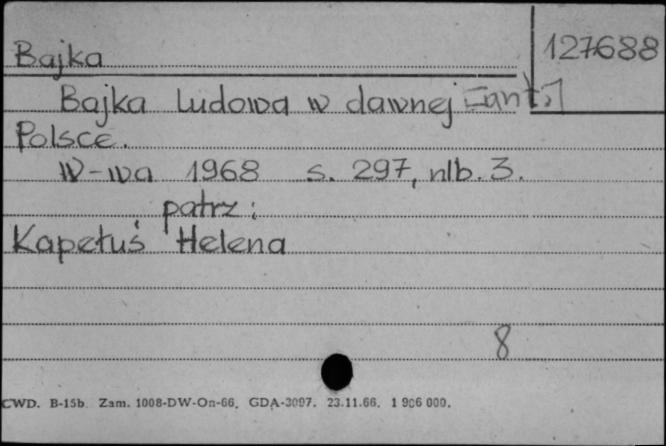 127688
Bajka
Bajka ludowa w dawnej [ant.]
Polsce.
W-wa 1968 s. 297, nlb. 3.
patrz:
Kapełuś Helena
8
CWD. B-15b. Zam. 1008-DW-On-66. GDA-3097. 23.11.66. 1 906 000.